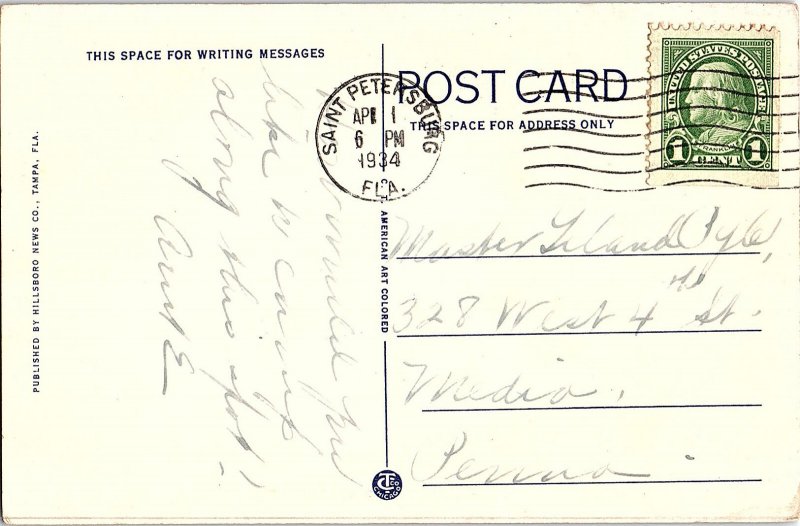 THIS SPACE FOR WRITING MESSAGES
would you
like to count
along this spot!!
Aunt E
PUBLISHED BY HILLSBORO NEWS CO., TAMPA, FLA.
AMERICAN ART COLORED
CTCO
CHICAGO
POST CARD
THIS SPACE FOR ADDRESS ONLY
SAINT PETERSBURG
APR 1
6 PM
1934
FLA.
UNITED STATES POSTAGE
FRANKLIN
1 CENT 1
Master Leland
328 West 4th St.
Media,
Penna.